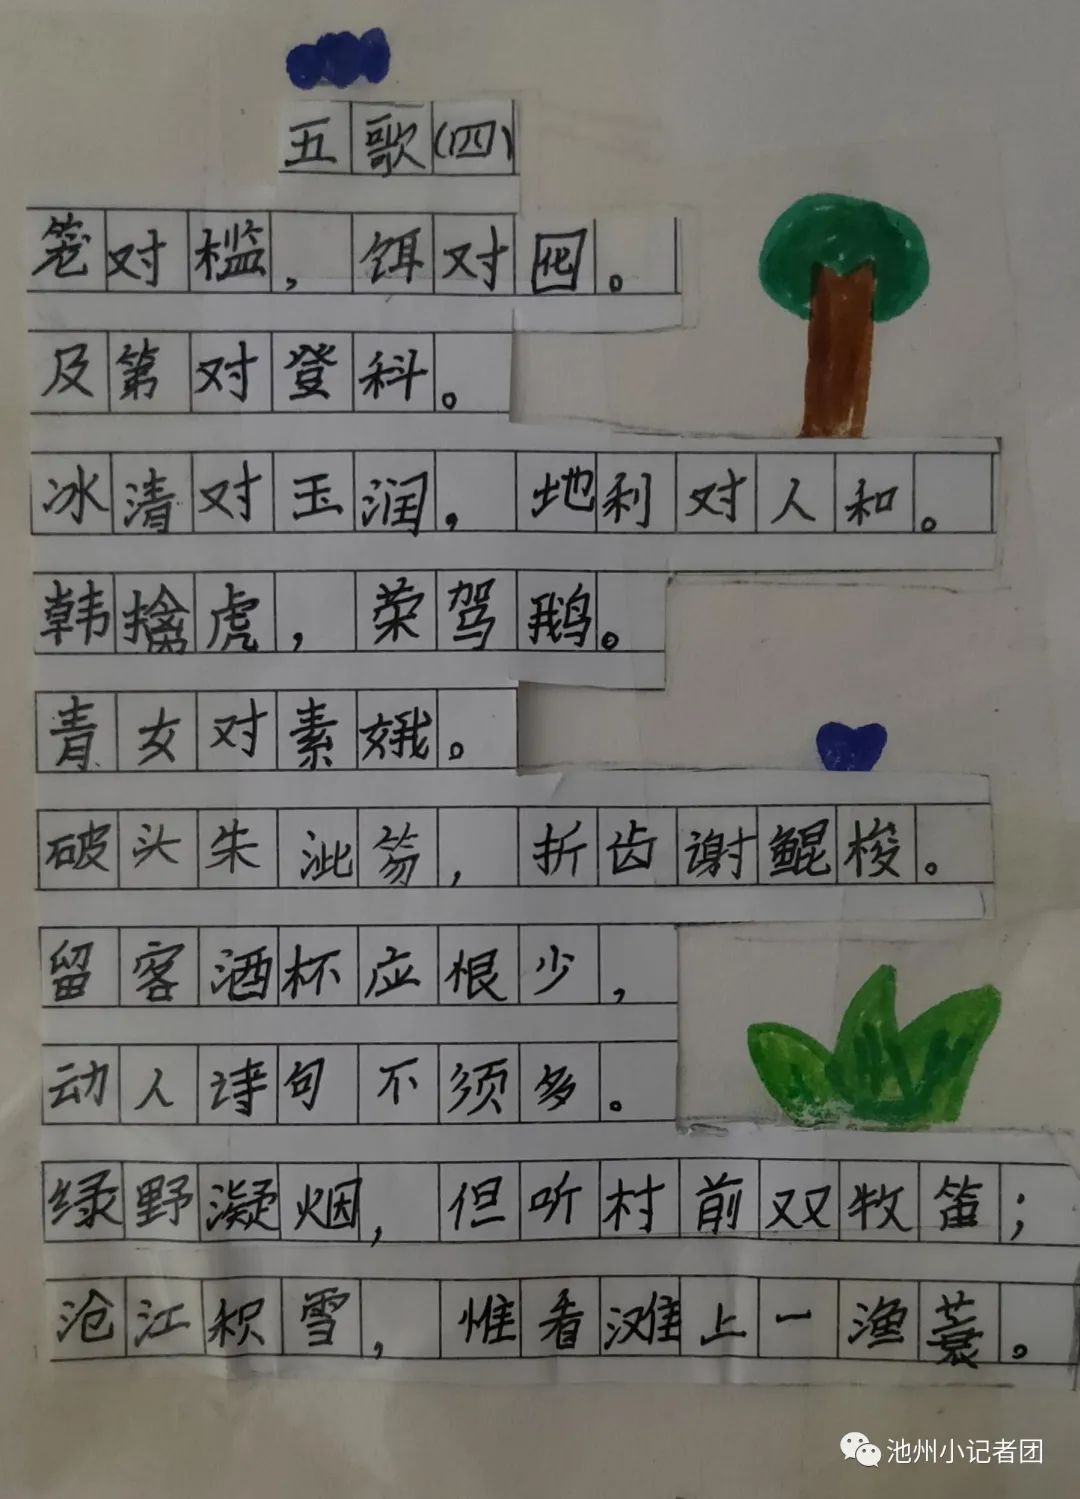 五歌(四)
笼对槛，饵对囮。
及第对登科。
冰清对玉润，地利对人和。
韩擒虎，荣驾鹅。
青女对素娥。
破头朱泚笏，折齿谢鲲梭。
留客酒杯应恨少，
动人诗句不须多。
绿野凝烟，但听村前双牧笛；
沧江积雪，惟看滩上一渔蓑。
池州小记者团